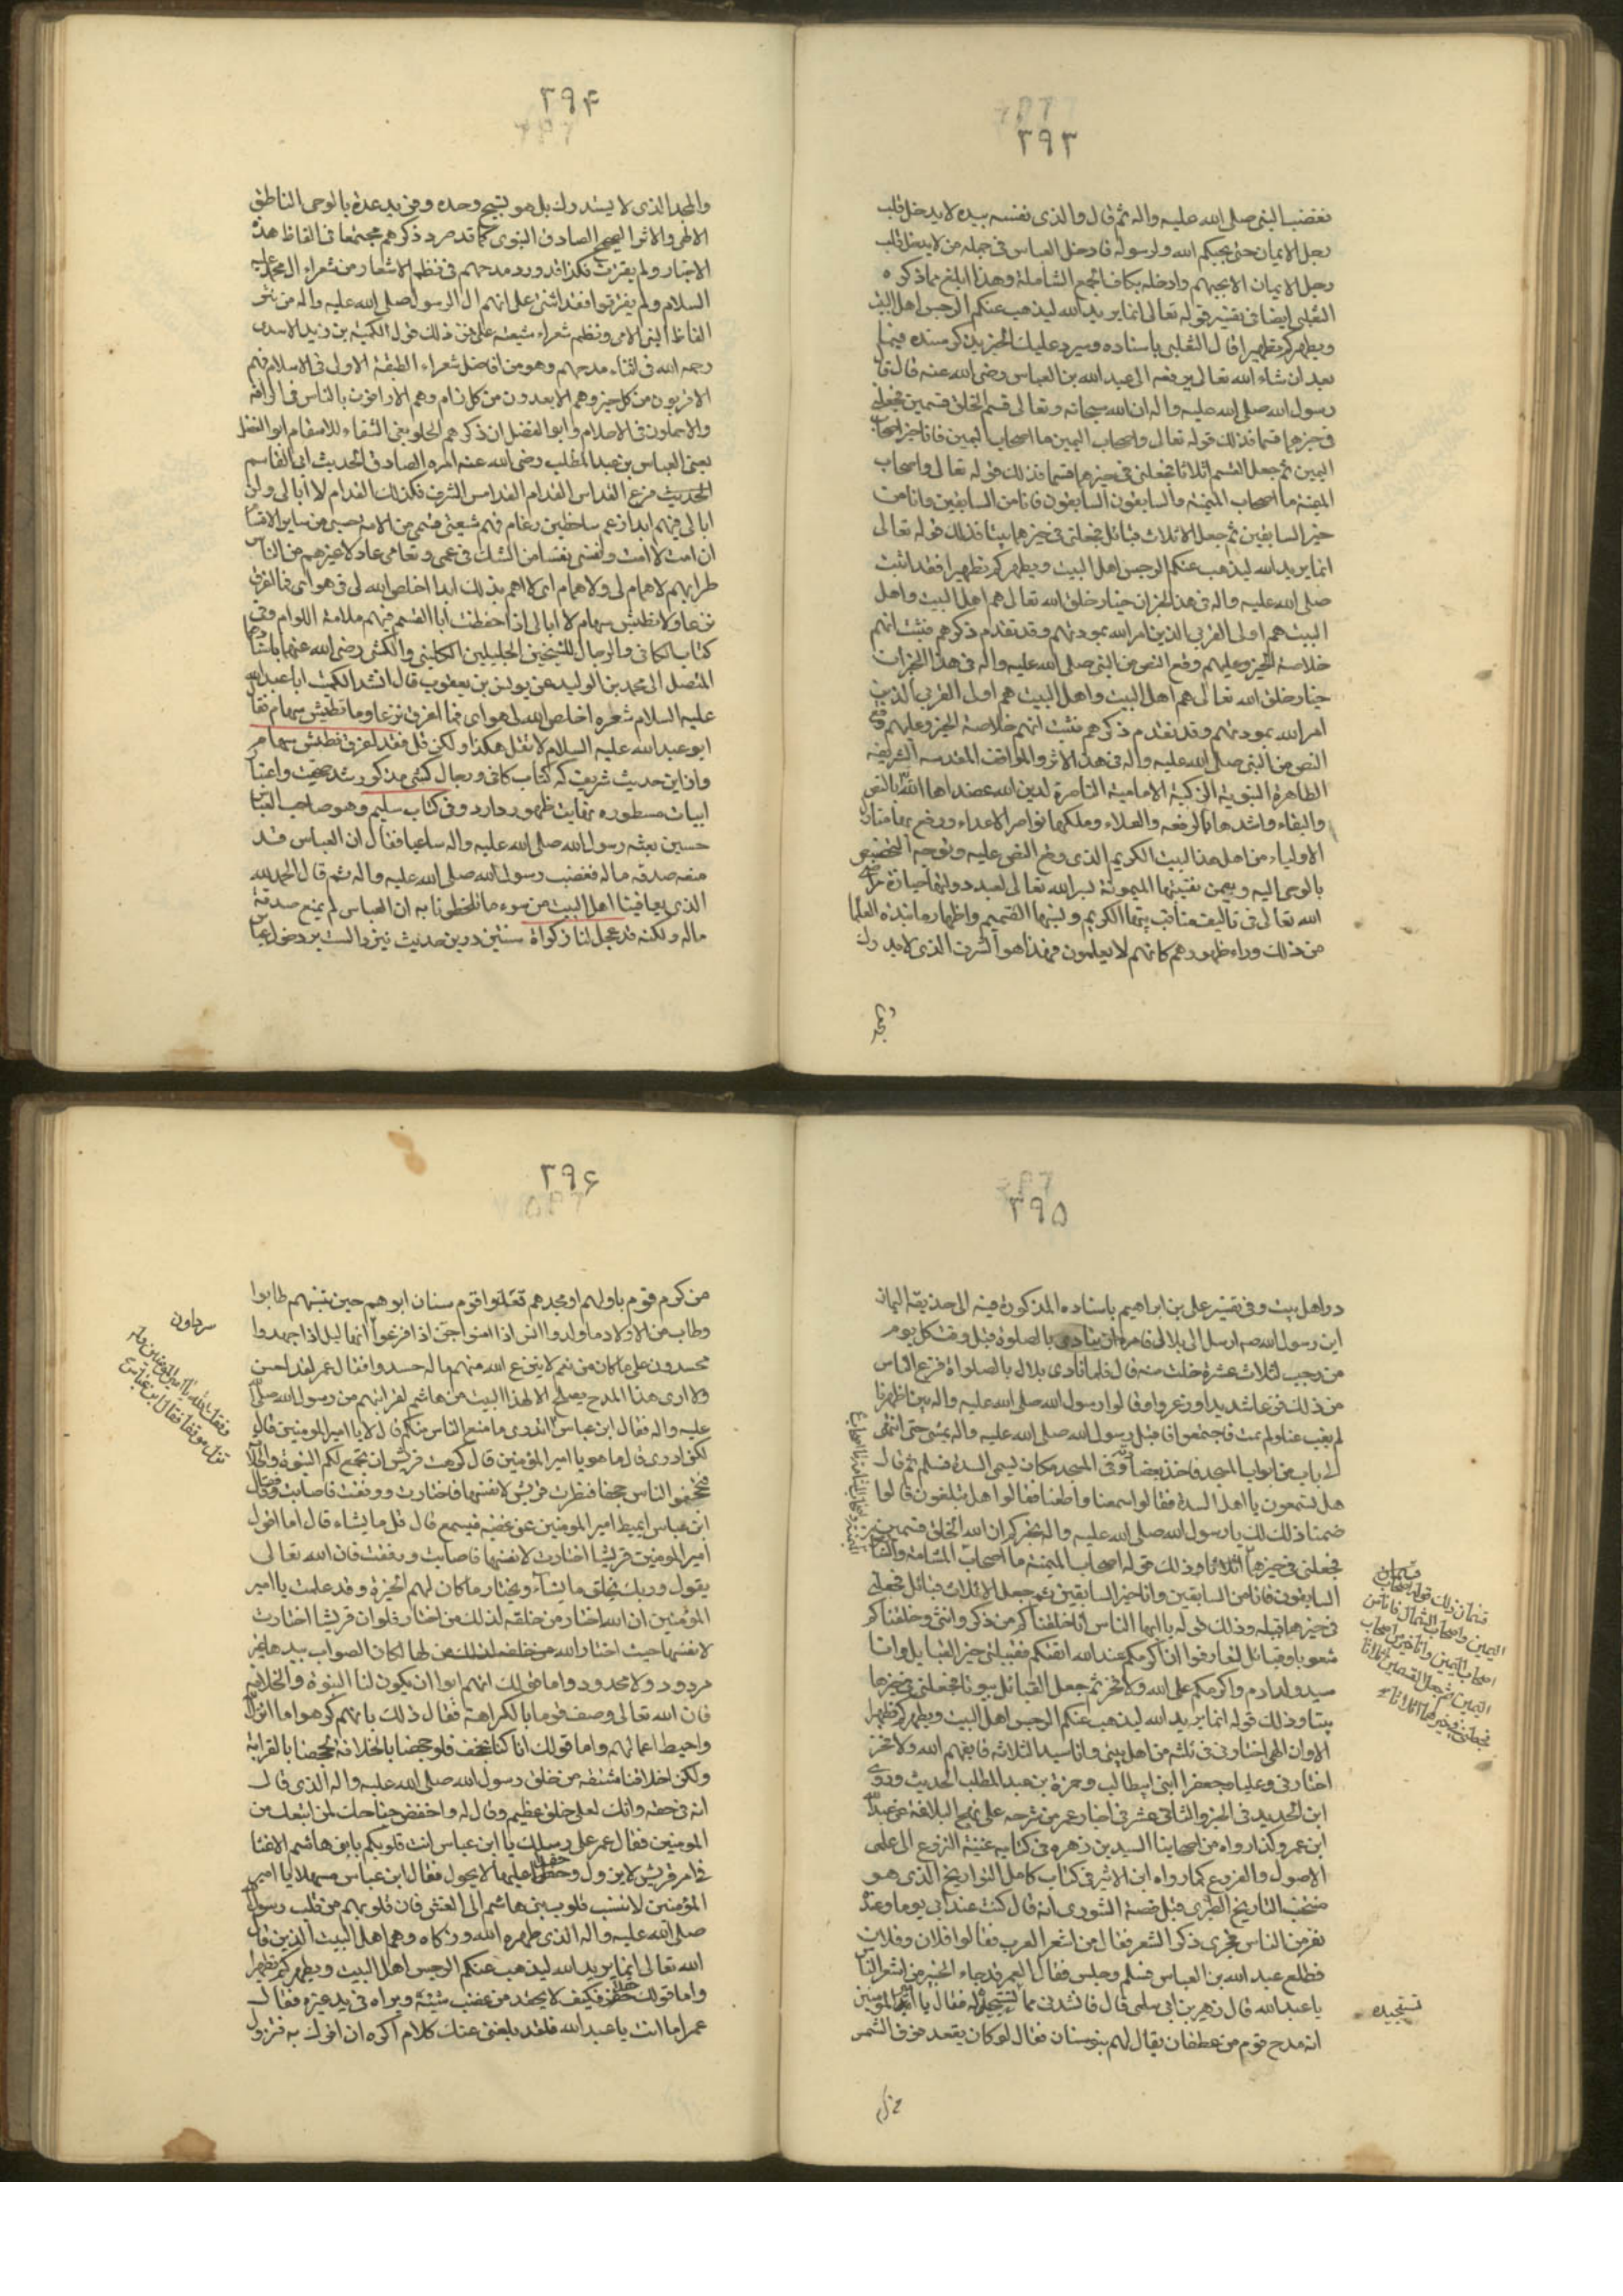 ٣٩٣
فغضب النبى صلى الله عليه واله ثم قال والذى نفسه بيده لا يدخل قلب
رجل الايمان حتى يحبكم الله ولرسوله فادخل العباس فى جمله من لا يدخل قلب
رجل الايمان الا بحبهم وادخله بكاف الجمع الشاملة وهذا ابلغ مما ذكره
الثعلبى ايضا فى تفسير قوله تعالى انما يريد الله ليذهب عنكم الرجس اهل البيت
ويطهركم تطهيرا قال الثعلبى باسناده وسيرد عليك الخبر بذكر مسنده فيما
بعد ان شاء الله تعالى يرفعه الى عبد الله بن العباس رضى الله عنه قال قال
رسول الله صلى الله عليه واله ان الله سبحانه وتعالى قسم الخلق قسمين فجعلنى
فى خيرهما قسما فذلك قوله تعالى واصحاب اليمين ما اصحاب اليمين فانا خير اصحاب
اليمين ثم جعل القسم اثلاثا فجعلنى فى خيرها قسما فذلك قوله تعالى واصحاب
الميمنة ما اصحاب الميمنة والسابقون السابقون فانا من السابقين وانا من
خير السابقين ثم جعل الاثلاث قبائل فجعلنى فى خيرها بيتا فذلك قوله تعالى
انما يريد الله ليذهب عنكم الرجس اهل البيت ويطهركم تطهيرا فقد اثبت
صلى الله عليه واله فى هذا الخبر ان خيار خلق الله تعالى هم اهل البيت واهل
البيت هم اولى القربى الذين امر الله بمودتهم وقد تقدم ذكرهم فثبت انهم
خلاصة الخير وعليهم وقع النص من النبى صلى الله عليه واله فى هذا الخبر ان
خيار خلق الله تعالى هم اهل البيت واهل البيت هم اولى القربى الذين
امر الله بمودتهم وقد تقدم ذكرهم فثبت انهم خلاصة الخير وعليهم وقع
النص من النبى صلى الله عليه واله فى هذا الاثر والمواقف المقدسه الشريفه
الطاهرة النبوية الزكية الامامية الناصرة لدين الله عضدها الله بالنص
والبقاء واشدها بالرفعه والعلاء وملكها نواصر الاعداء ورفع بها منار
الاولياء من اهل هذا البيت الكريم الذى وقع النص عليه وتوجه التخصيص
بالوحى اليه وبيمن نقيبتها الميمونة لبر الله تعالى لعبد دولتها حيازة مراضى
الله تعالى فى تاليف مناقب بيتها الكريم ونسبها الصميم واظهار ما نبذه العلماء
من ذلك وراء ظهورهم كانهم لا يعلمون فهذا هو الشرف الذى لا يدرك
٣٩۴
والمجد الذى لا يستدرك بل هو نسيج وحده وفريد عدة بالوحى الناطق
الالهى والاثر الصحيح الصادق النبوى كما قد صرد ذكرهم مجتمعا فى الفاظ هذه
الاخبار ولم يفترق فكذا قد ورد مدحهم فى نظم الاشعار من شعراء ال محمد عليه
السلام ولم يفترقوا فقد اثنى على انهم ال الرسول صلى الله عليه واله من نثر
الفاظ النبى الامى ونظم شعراء شيعته على فمن ذلك قول الكميت بن زيد الاسدى
رحمه الله فى اثناء مدحهم وهو من افاضل شعراء الطبقة الاولى فى الاسلام فهم
الاقربون من كل خير وهم الابعدون من كل ذام وهم الاراوفون بالناس فى الرافه
والاحملون فى الاحلام وابو الفضل ان ذكرهم الحلو بفى الشفاء للاسقام ابو الفضل
يعنى العباس بن عبد المطلب رضى الله عنه امره الصادق الحديث ابى القاسم
الحديث فرع القداس القدام القدامس الشرف فكذلك القدام لا ابالى ولن
ابالى فيهم ابدا زعم ساخطين رغام فهم شيعتى قسمى من الامة حسبى من ساير الاقسام
ان امت لا امت ونفسى نفسا من الشك فى عمى وتعامى عاد لا غيرهم من الناس
طرا بهم لا همام لى ولا همام اى لا اهم بذلك ابدا اخلص الله لى فى هواى فما اغرق
نزعا ولا تطيش سهام لا ابالى اذا حفظت ابا القسم فيهم ملامة اللوام وفى
كتاب الكافى والرجال للشيخين الجليلين الكلينى والكشى رضى الله عنهما باسناده
المتصل الى محمد بن الوليد عن يونس بن يعقوب قال انشد الكميت ابا عبد الله
عليه السلام شعره اخلص الله لى هواى فما اغرق نزعا وما تطيش سهام فقال
ابو عبد الله عليه السلام لا تقل هكذا ولكن قل فقد اغرق فطيش سهام
واز اين حديث شريف كه كتاب كافى ورجال كشى مذكور شد حقيت واعتبار
ابيات مسطوره بغايت ظهور دارد وفى كتاب سليم وهو صاحب
حسين بعثه رسول الله صلى الله عليه واله ساعيا فقال ان العباس قد
منعه صدقه ماله فغضب رسول الله صلى الله عليه واله ثم قال الحمد لله
الذى يعافينا اهل البيت من سوء ما يلطخونا به ان العباس لم يمنع صدقة
ماله ولكنه قد عجل لنا زكواة سنتين درين حديث نيز دالست بر دخول عباس
٣٩۵
در اهل بيت وفى تفسير على بن ابراهيم باسناده المذكورة فيه الى حذيفة اليمان
ان رسول الله صه ارسل الى بلال فامره ان ينادى بالصلوة قبل وقت كل يوم
من رجب لثلاث عشرة خلت منه قال فلما نادى بلال بالصلواة فزع الناس
من ذلك فزعا شديدا وذعروا وقالوا رسول الله صلى الله عليه واله بين اظهرنا
لم يغب عنا ولم يمت فاجتمعوا فاقبل رسول الله صلى الله عليه واله يمشى حتى انتهى
الى باب من ابواب المسجد فاخذ بعضادته وفى المسجد مكان يسمى السدة فسلم ثم قال
هل تسمعون يا اهل السدة فقالوا سمعنا واطعنا فقالوا هل تبلغون قالوا
ضمنا ذلك لك يا رسول الله صلى الله عليه واله نخبركم ان الله الخلق قسمين
فجعلنى فى خيرها اثلاثا وذلك قوله اصحاب الميمنة ما اصحاب المشامة والسابقون
السابقون فانا من السابقين وانا خير السابقين ثم جعل الاثلاث قبائل فجعلنى
فى خيرها قبيله وذلك قوله يا ايها الناس انا خلقناكم من ذكر وانثى وخلقناكم
شعوبا وقبائل لتعارفوا ان اكرمكم عند الله اتقيكم فقبيلتى خير القبايل وانا
سيد ولد ادم واكرمكم على الله ولا فخر ثم جعل القبائل بيوتا فجعلنى فى خيرها
بيتا وذلك قوله انما يريد الله ليذهب عنكم الرجس اهل البيت ويطهركم تطهيرا
الا وان الهى اختارنى فى ثلثه من اهل بيتى وانا سيد الثلاثه فاتقيهم الله ولا فخر
اختارنى وعليا وجعفرا ابنى ابيطالب وحمزة بن عبد المطلب الحديث وروى
ابن الحديد فى الجزو الثانى عشر فى اخبار عمر من شرحه على نهج البلاغة عن عبد الله
ابن عمر وكذا رواه من اصحابنا السيد بن زهره فى كتابه غنية النزوع الى علمى
الاصول والفروع كما رواه ابن الاثير فى كتاب كامل التواريخ الذى هو
منتخب التاريخ الطبرى قبل قصة الشورى انه قال كنت عند ابى يوما وعنده
نفر من الناس فجرى ذكر الشعر فقال من اشعر العرب فقالوا فلان وفلان
فطلع عبد الله بن العباس فسلم وجلس فقال العمر قد جاء الخبير من اشعر الناس
يا عبد الله قال زهير بن ابى سلمى قال فانشدنى مما تستجيد له فقال يا امير المومنين
انه مدح قوم من غطفان يقال لهم بنو سنان فقال لو كان يقعد فوق الشمس
تستجيده
٣٩۶
من كرم قوم باولهم او مجدهم قعدوا قوم سنان ابوهم حين تنسبهم طابوا
وطاب من الاولاد ما ولدوا انس اذا امنوا جن اذا فزعوا انما ليل اذا جهدوا
محسدون على ما كان من نعم لا ينزع الله منهم ما له حسدوا فقال عمر لقد احسن
ولا ارى هذا المدح يصلح الا لهذا البيت من هاشم لقرابتهم من رسول الله صلى الله
عليه واله فقال ابن عباس اتدرى ما منع الناس منكم قال لا يا امير المومنين قال
لكنى ادرى قال ما هو يا امير المؤمنين قال كرهت قريش ان تجتمع لكم النبوة والخلافة
فتجخفوا الناس جخفا فنظرت قريش لانفسها فاختارت ووفقت فاصابت فقال
ابن عباس ايميط امير المومنين عن غضبه فيسمع قال قل ما يشاء قال اما قول
امير المومنين قريشا اختارت لانفسها فاصابت ووفقت فان الله تعالى
يقول وربك يخلق ما يشآء ويختار ما كان لهم الخيرة وقد علمت يا امير
المؤمنين ان الله اختار من خلقه لذلك من اختار فلو ان قريشا اختارت
لانفسها حيث اختار الله من خلقه لذلك من لها لكان الصواب بيدها غير
مردود ولا محدود واما قولك انهم ابوا ان يكون لنا النبوة والخلافة
فان الله تعالى وصف قوما بالكراهة فقال ذلك بانهم كرهوا ما انزل الله
واحبط اعمالهم واما قولك انا كنا نجخف فلو جخفنا بالخلافة لجخفنا بالقرابة
ولكن اخلاقنا مشتقه من خلق رسول الله صلى الله عليه واله الذى قال
انه فى حقه وانك لعلى خلق عظيم وقال له واخفض جناحك لمن اتبعك من
المومنين فقال عمر على رسلك يا ابن عباس ابت قلوبكم يا بنى هاشم الا غشا
فى امر قريش لا يزول وحقدا عليها لا يحول فقال ابن عباس مهلا يا امير
المؤمنين لا تنسب قلوب بنى هاشم الى الغش فان قلوبهم من قلب رسول الله
صلى الله عليه واله الذى طهره الله وزكاه وهم اهل البيت الذين قال
الله تعالى انما يريد الله ليذهب عنكم الرجس اهل البيت ويطهركم تطهيرا
واما قولك حقدا فكيف لا يحقد من غضب شيئه ويراه فى يد غيره فقال
عمر اما انت يا عبد الله فلقد بلغنى عنك كلام اكره ان اخبرك به فتزول